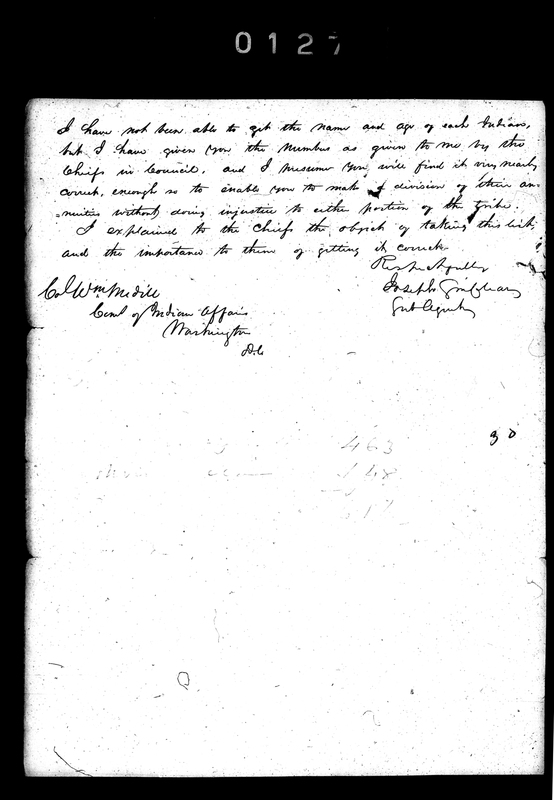 0127
I have not been able to get the name and age of each Indian,
but I have given you the number as given to me by the
Chiefs in Council, and I presume you will find it very nearly
correct, enough so to enable you to make a division of their an-
=nuities without doing injustice to either portion of the tribe.
I explained to the Chiefs the object of taking this list,
and the importance to them of getting it correct.
Respectfully
Joseph
Sub Agent
Col Wm Medill
Coml of Indian Affairs
Washington
D.C
30
463
148